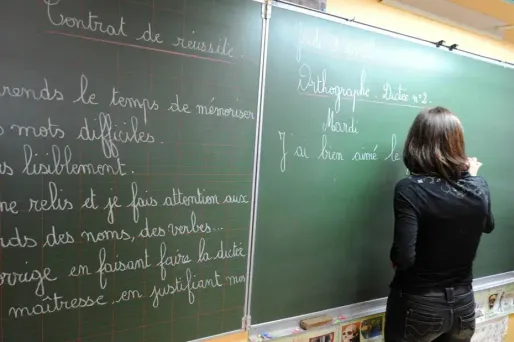 Contrat de réussite.
rends le temps de mémoriser
mots difficiles.
lisiblement.
me relis et je fais attention aux
des noms, des verbes...
orrige en faisant faire la dictée
maîtresse en justifiant mes
Orthographe : Dictée n°2.
Mardi
J'ai bien aimé le